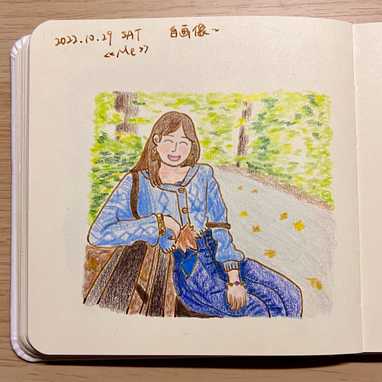 2022.10.29 SAT 自画像~
《Me》